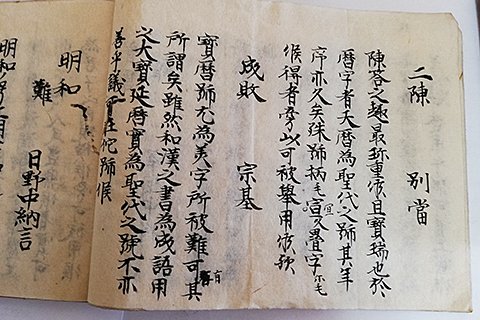 二陳　別當
陳答之趣最所重候且寶瑞也於
暦字者大暦為聖代之号其年
序亦久矣殊号柄毛宜又畳字尓毛
候得者旁以可被舉用候歟
成敗　宗基
寳暦号尤為美字所被難可其
所謂矣雖然和漢之書為成語用
之大寳延暦寳為聖代之號不亦
善乎議在他号候
明和
難　日野中納言
明和号